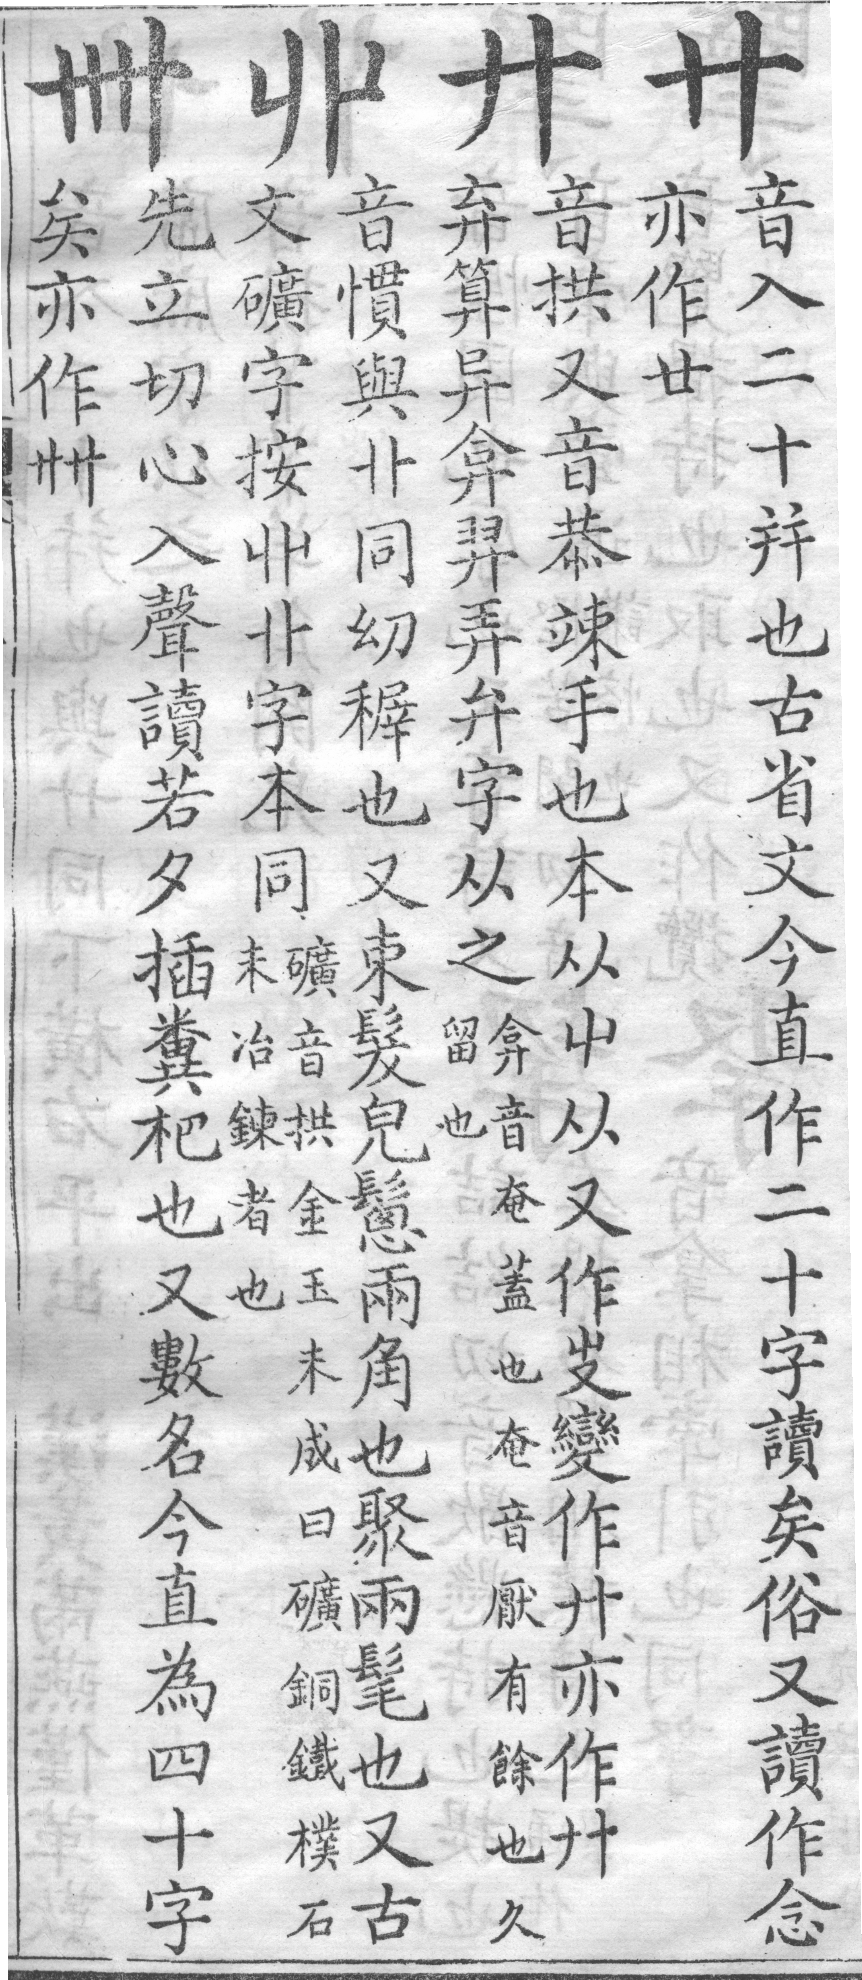 廾 音入二十并也古省文今直作二十字讀矣俗又讀作念
亦作廿
廾 音拱又音恭竦手也本从屮从又作㞢變作廾亦作廾
弃算异弇羿弄弁字从之弇音奄蓋也奄音厭有餘也久
留也
丱 音慣與卝同幼穉也又束髮皃鬆兩角也聚兩髦也又古
文礦字按丱卝字本同礦音拱金玉未成曰礦銅鐵樸石
未冶鍊者也
卌 先立切心入聲讀若夕插糞杷也又數名今直為四十字
矣亦作卌